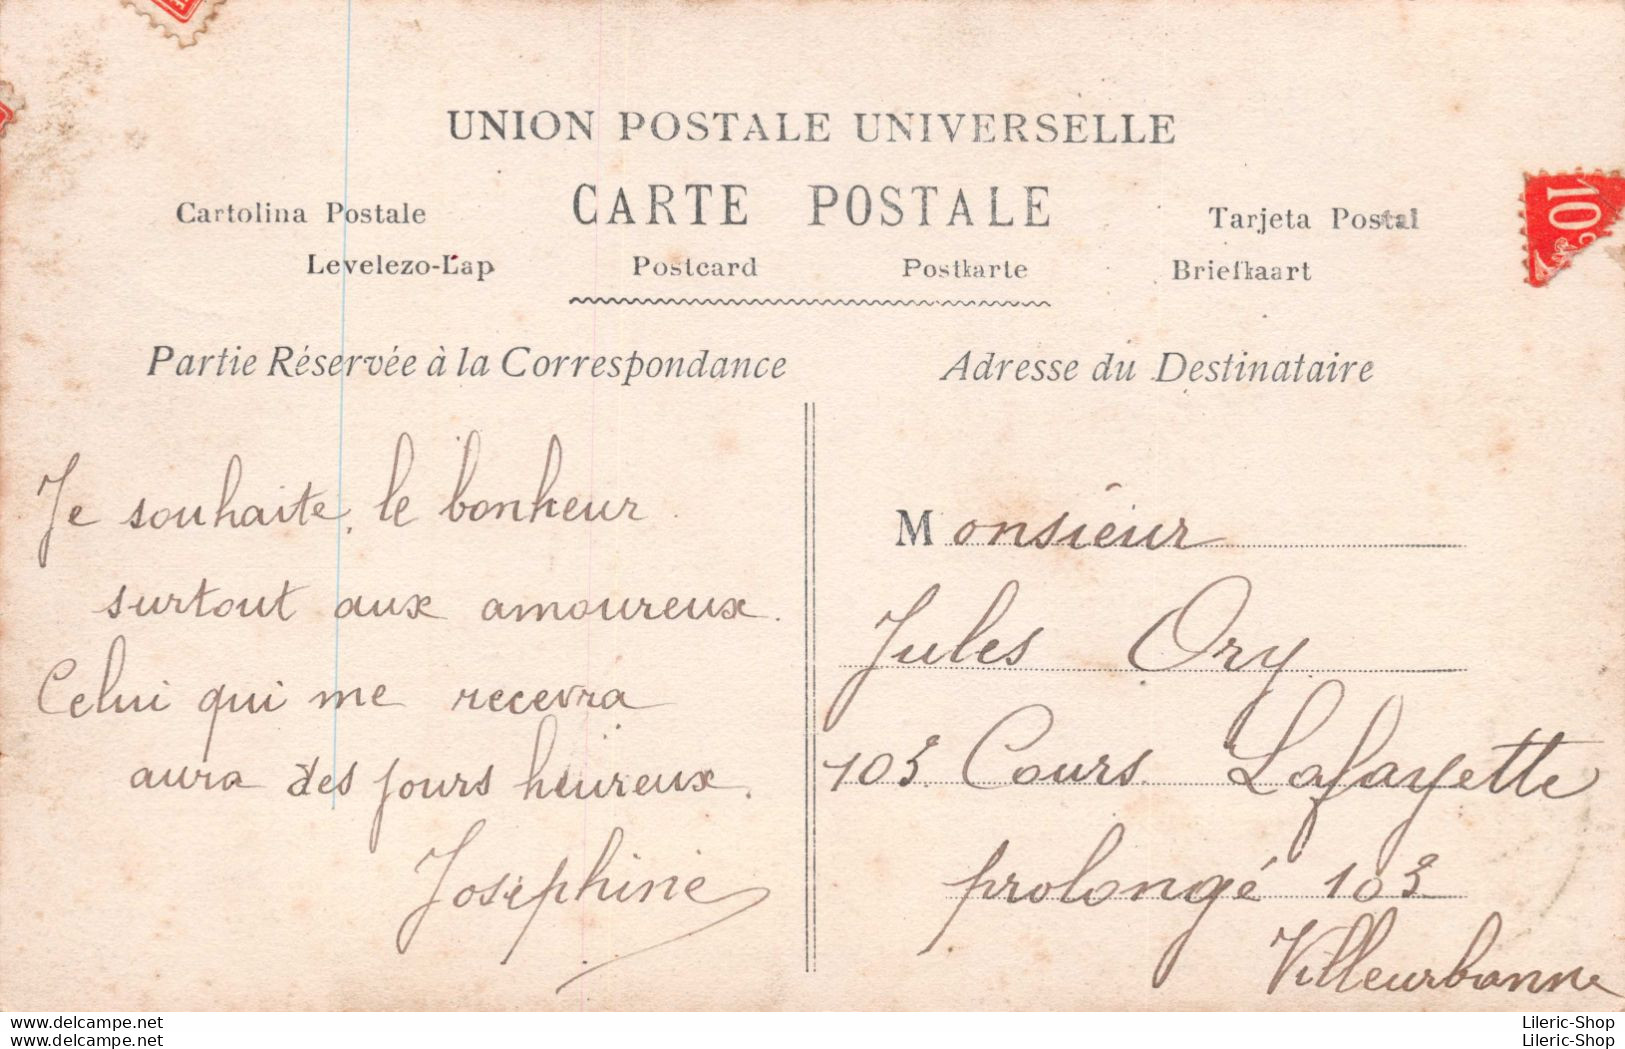 UNION POSTALE UNIVERSELLE
CARTE POSTALE
Cartolina Postale
Tarjeta Postal
Levelezo-Lap
Postcard
Postkarte
Briefkaart
10
Partie Réservée à la Correspondance
Je souhaite, le bonheur
surtout aux amoureux.
Celui qui me recevra
aura des jours heureux.
Joséphine
Adresse du Destinataire
Monsieur
Jules Ory
103 Cours Lafayette
prolongé 103
Villeurbanne
www.delcampe.net
Lileric-Shop
www.delcampe.net
Lileric-Shop